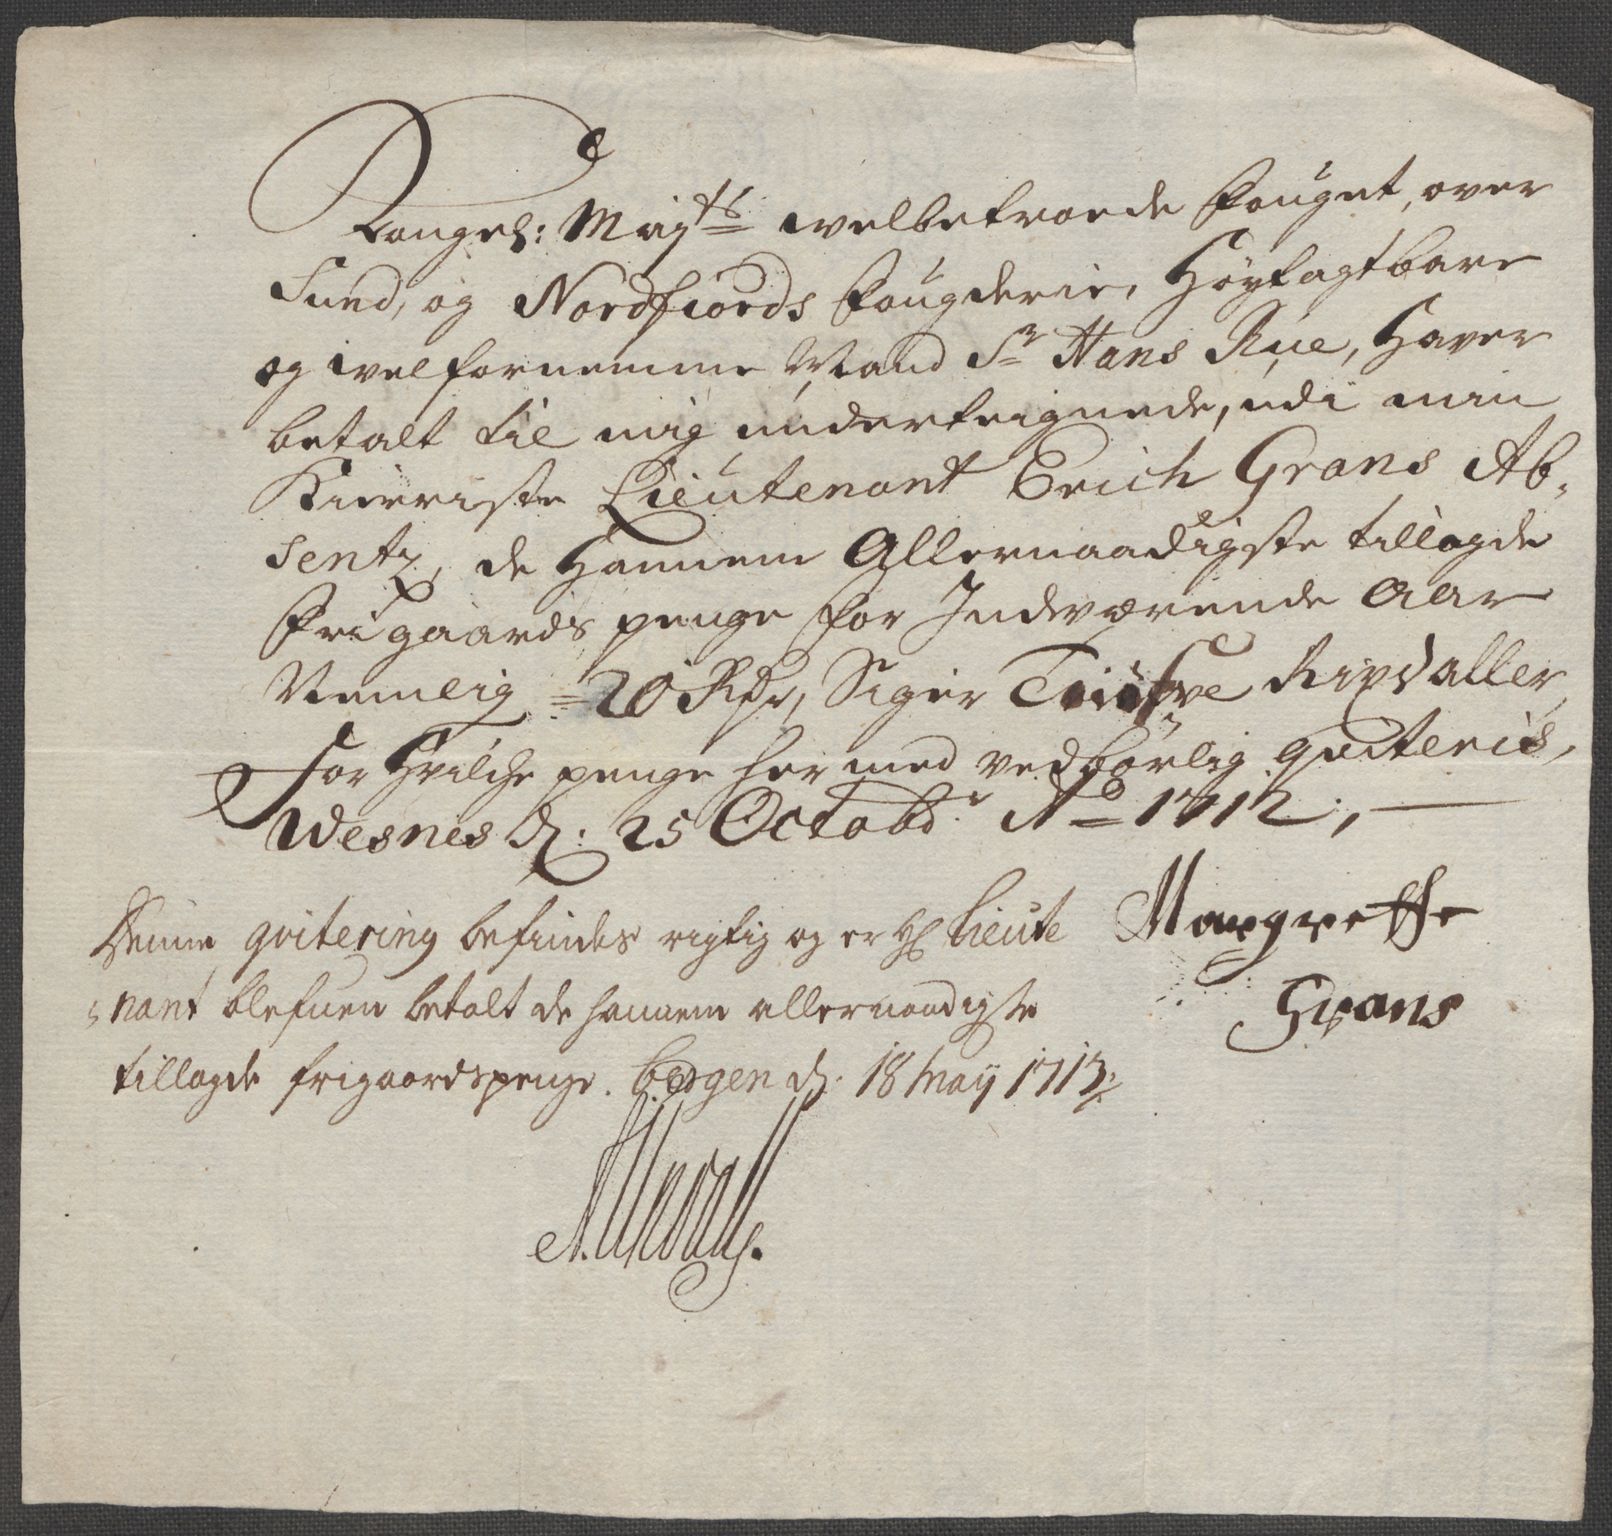 Kongel: Mayts welbetroede Fouget, over
Sund, og Nordfiords Fougderie, Høyfagtbare
og welfornemme Mand Sr Hans Rue, Haver
betalt til mig underteignede, udi min
Kierriste Lieutenant Erich Grans Ab,
sentz, de Hannem Allernaadigste tillagde
Frigaards penge for Indværende Aar
Nemlig =20 Rdr, Siger Tiufve Rixdaller,
For Hvilche penge her med vedbørlig qviteris,
Wesnes d: 25 Octobr Ao 1712,
Denne qvitering befindes rigtig og er Hr Lieute
nant blefuen betalt de hannem allernaadigste
tillagde frigaardspenge. Bergen d: 18 Maij 1713:
Margrette
Grans